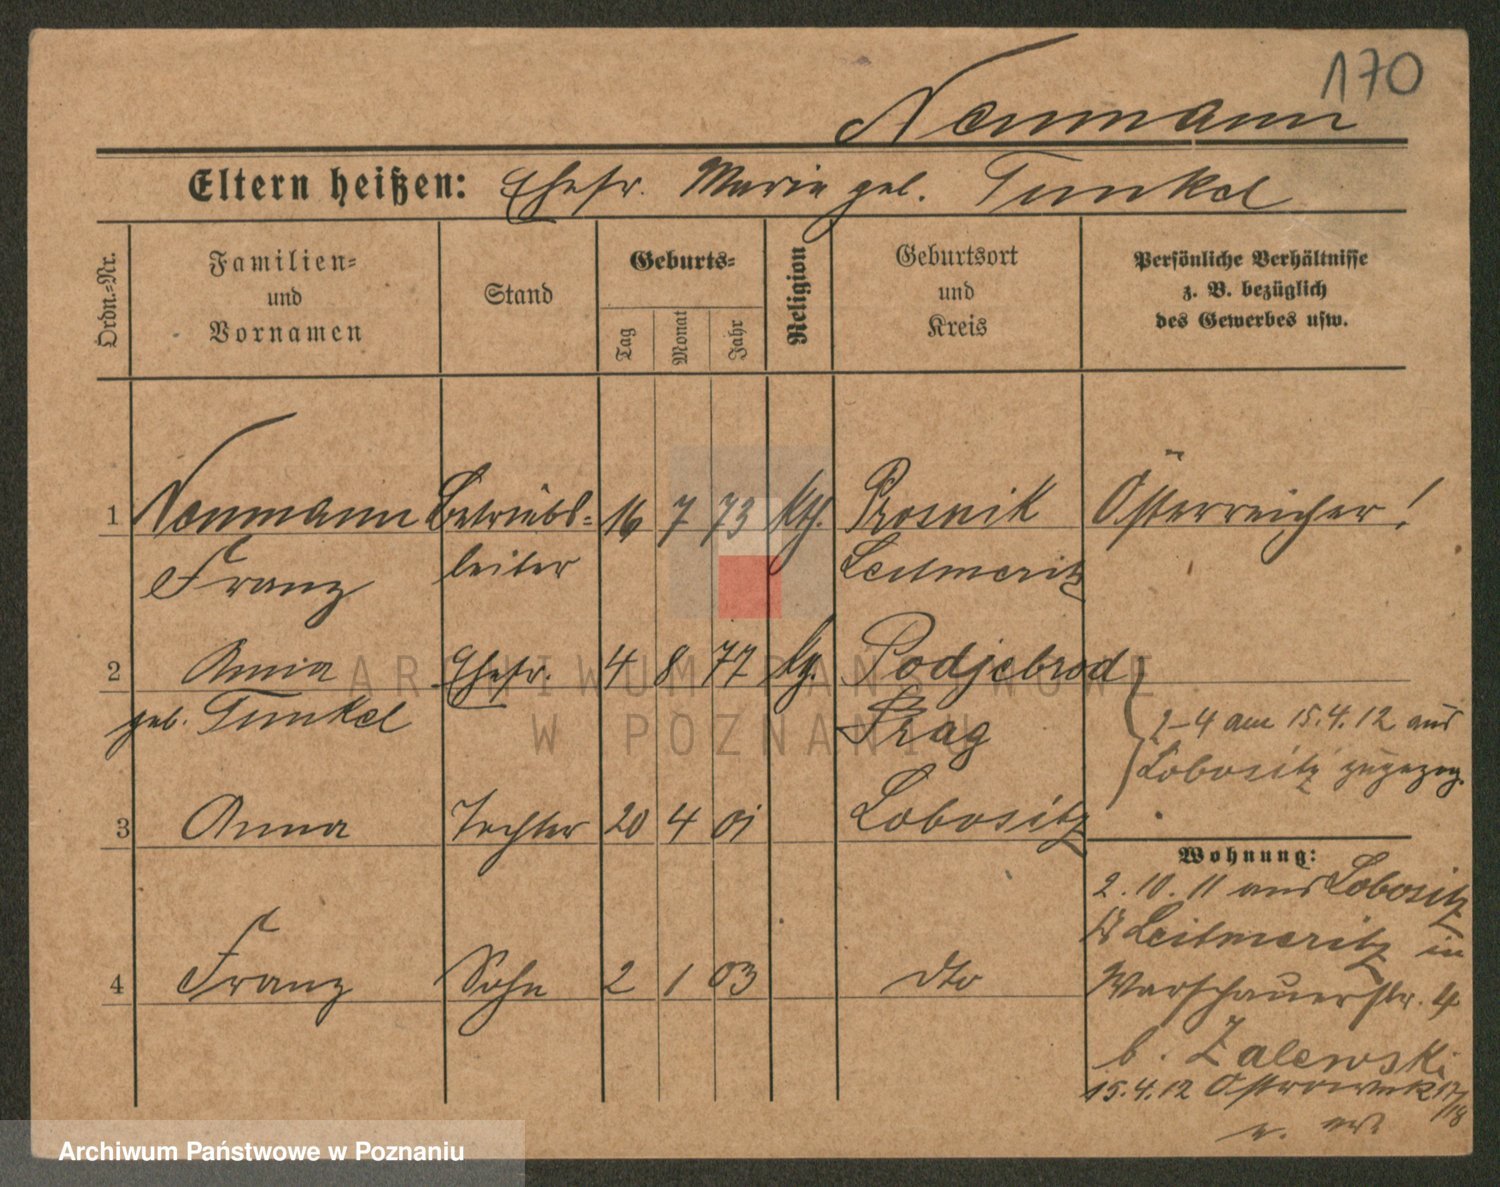 170
Neumann
Eltern heißen: Ehefr. Marie geb. Tunkel
Ordn.-Nr.
Familien-
und
Vornamen
Stand
Geburts-
Tag
Monat
Jahr
Religion
Geburtsort
und
Kreis
Persönliche Verhältnisse
z. B. bezüglich
des Gewerbes usw.
1 Neumann Betriebs- 16 7 73 kth. Prosnik Österreicher!
Franz leiter Leitmeritz
2 Anna Ehefr. 4 8 77 Podjebrod
geb. Tunkel Prag
2-4 am 15.4.12 aus
Lobositz zugezog.
3 Anna Tochter 20 4 01 Lobositz
Wohnung:
2.10.11 aus Lobositz
Leitmeritz in
4 Franz Sohn 2 1 03 dto
Warschauerstr. 4
b. Zalewski
15.4.12 17/18
ARCHIWUM PAŃSTWOWE
W POZNANIU
Archiwum Państwowe w Poznaniu